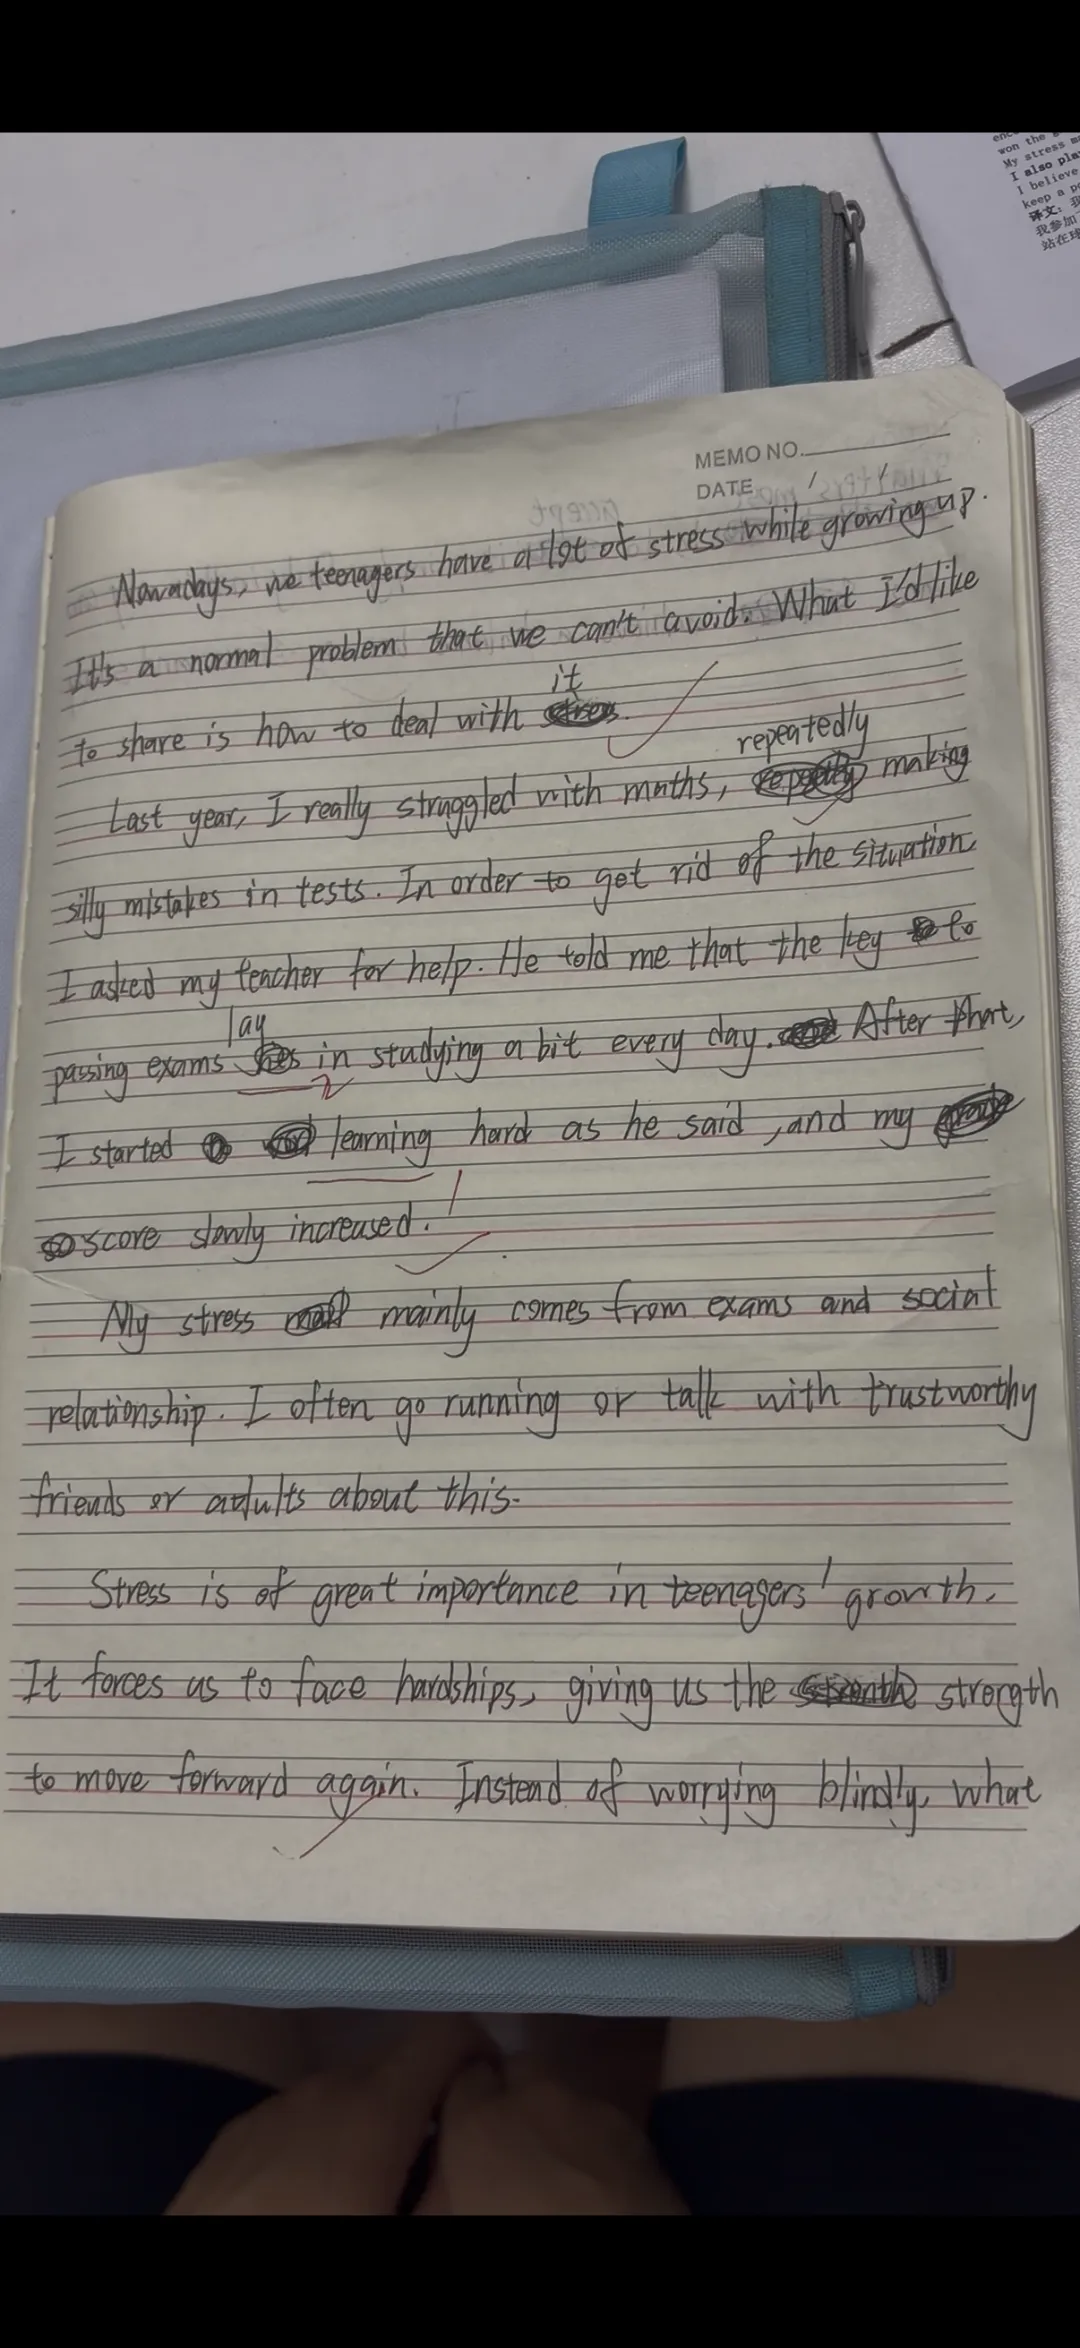 won the
My stress
I also pla
I believe
keep a p
译文：我
我参加
站在球
MEMO NO.
DATE / /
Nowadays, we teenagers have a lot of stress while growing up.
It's a normal problem that we can't avoid. What I'd like
it
to share is how to deal with
repeatedly
Last year, I really struggled with maths, making
silly mistakes in tests. In order to get rid of the situation
I asked my teacher for help. He told me that the key to
lay
passing exams in studying a bit every day. After that,
I started learning hard as he said, and my
score slowly increased.
My stress mainly comes from exams and social
relationship. I often go running or talk with trustworthy
friends or adults about this.
Stress is of great importance in teenagers' growth.
It forces us to face hardships, giving us the strength
to move forward again. Instead of worrying blindly, what